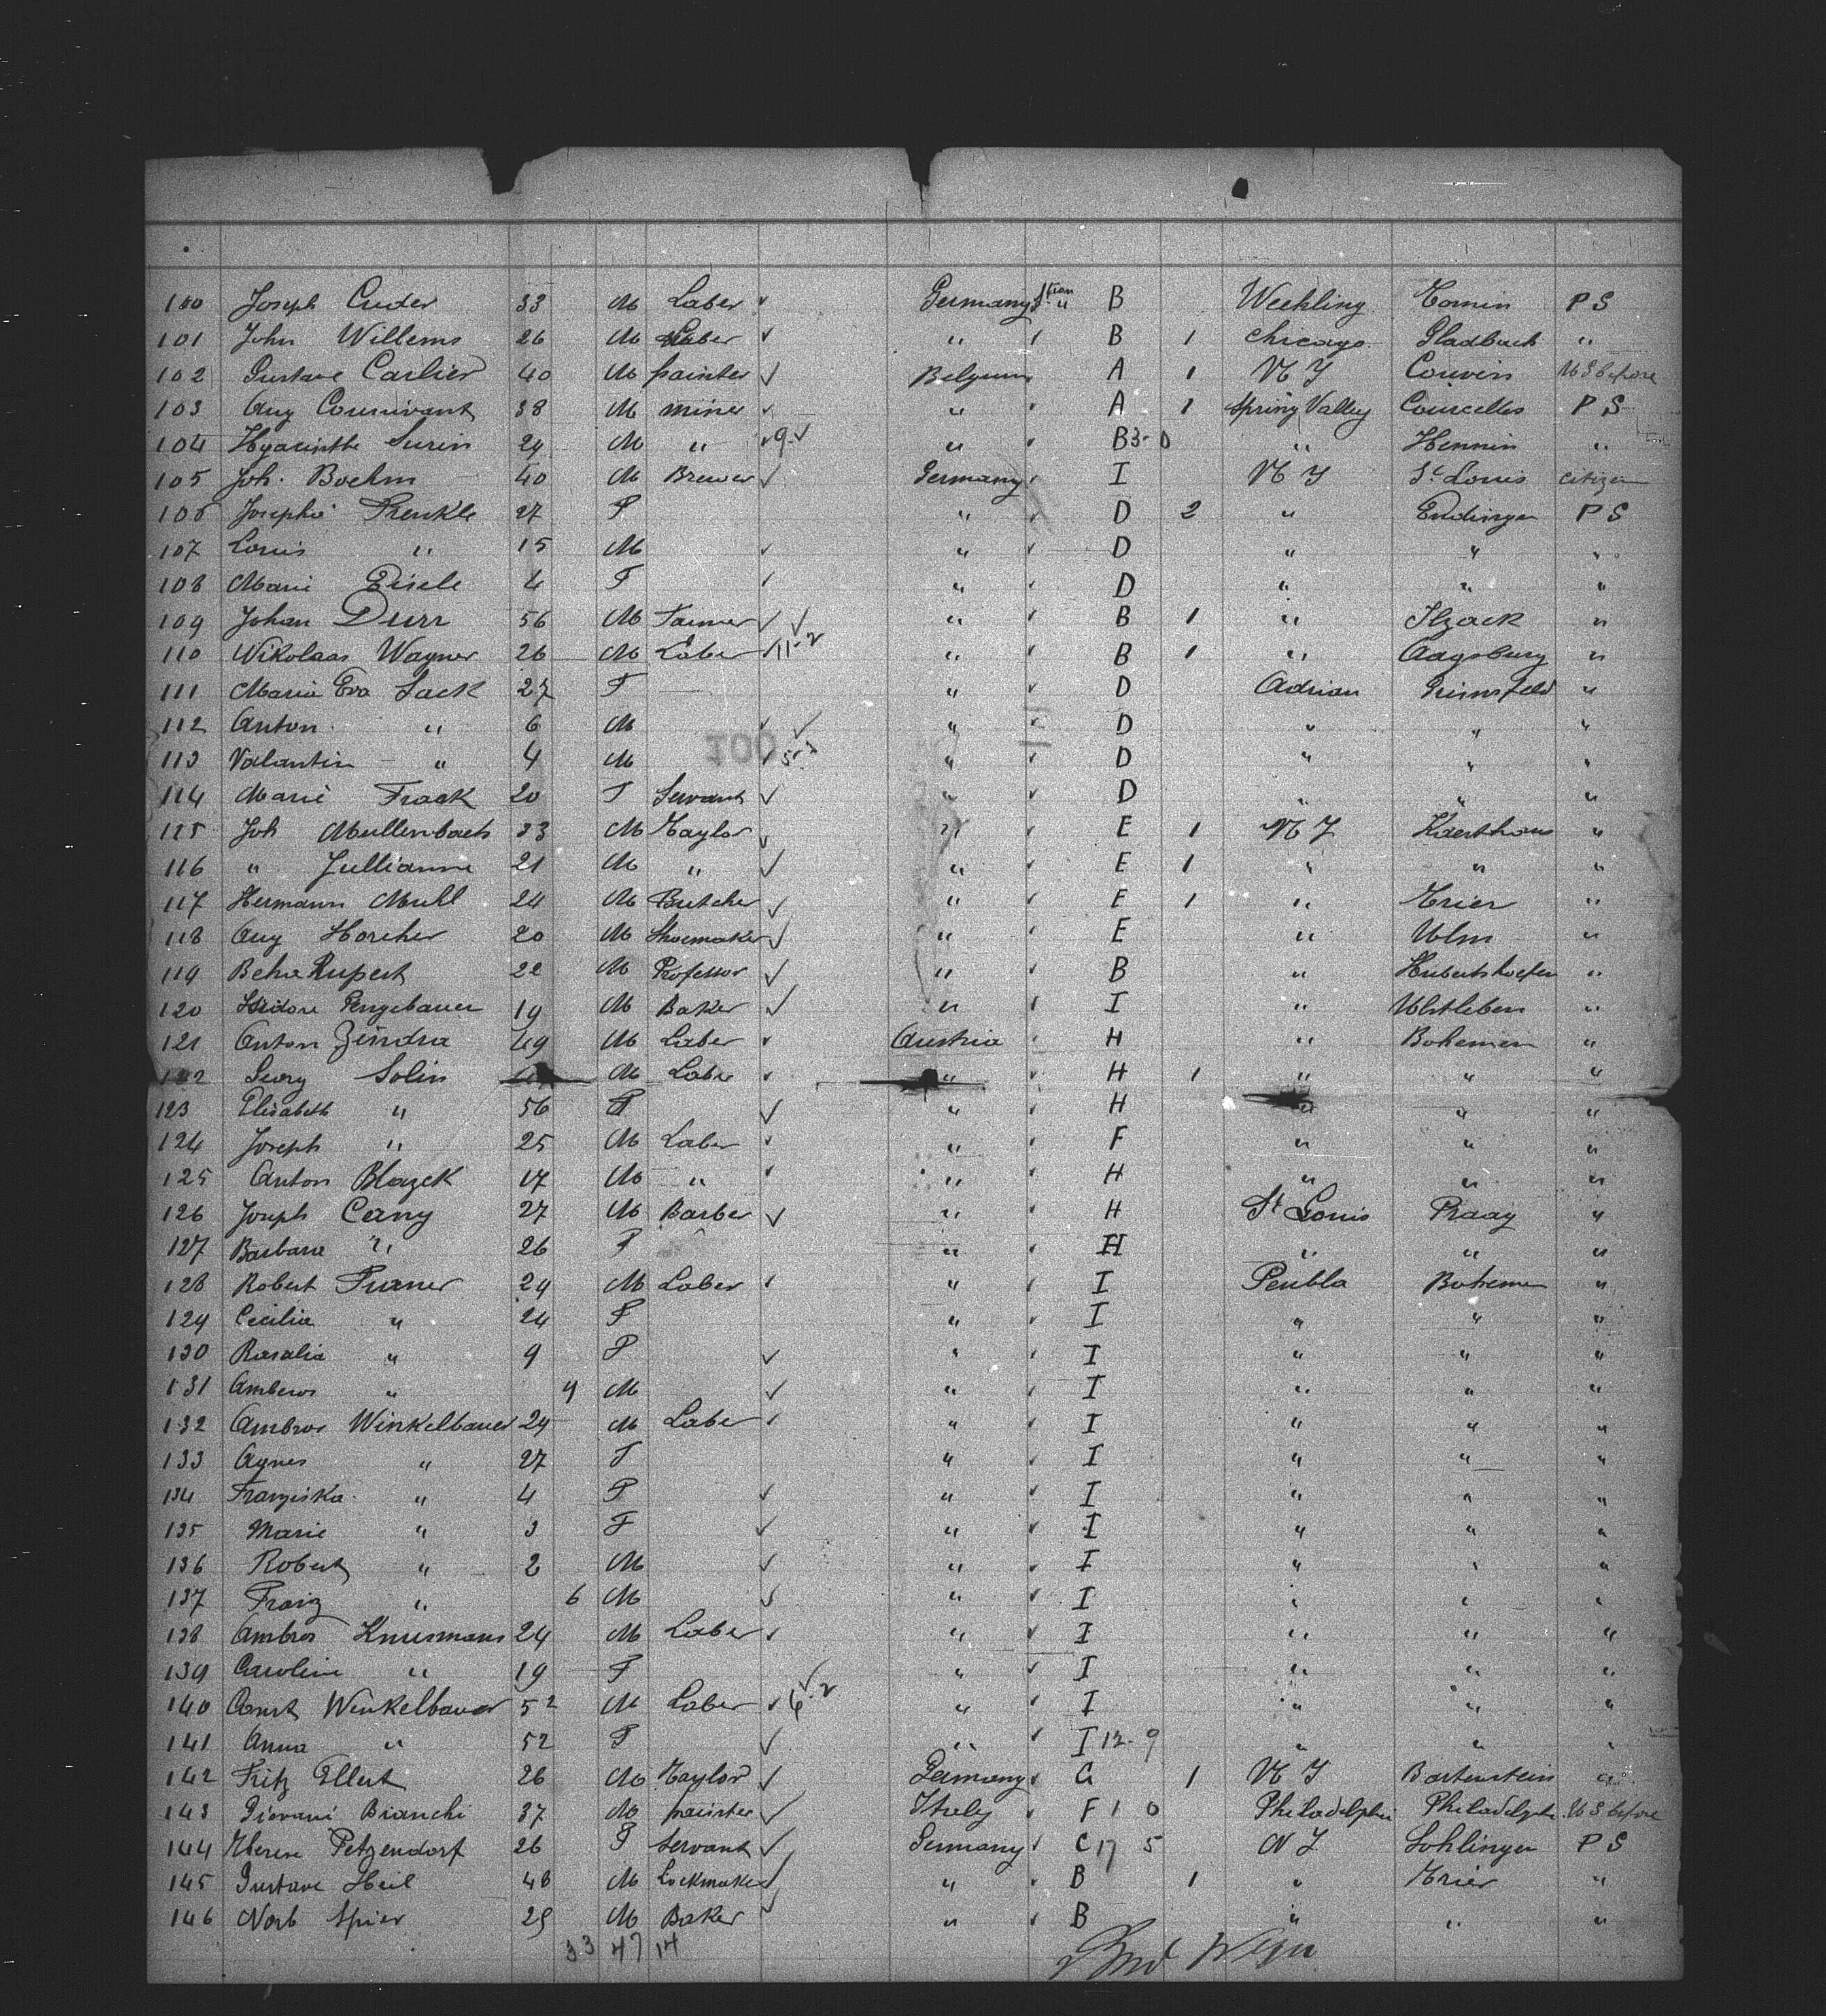 100 Joseph Cuder 33 M Laber Germany B Weehling Comin P S
101 John Willems 26 M Laber " B 1 Chicago Gladbach "
102 Gustave Carlier 40 M painter Belgium A 1 N Y Couvin U S before
103 Aug 38 M miner " A 1 Spring Valley Courcelles P S
104 Hyacinthe Surin 29 M " 9 " B 3-0 " Hennin "
105 Joh. Boehm 40 M Brewer Germany I N Y St Louis citizen
106 Josephe Renkle 27 F " D 2 " Endingen P S
107 Louis " 15 M " D " " "
108 Marie Eisele 4 F " D " " "
109 Johan Durr 56 M Farmer " B 1 " Ilzack "
110 Nikolaas Wagner 26 M Laber 11-2 " B 1 " Augsburg "
111 Maria Eva Sack 27 F " D Adrian Grimsfeld "
112 Anton " 6 M " D " " "
113 Valantin " 4 M " D " " "
100
114 Marie Frack 20 F Servant " D " " "
115 Joh Mullenbach 33 M Taylor " E 1 N Y "
116 " Jullianne 21 M " " E 1 " " "
117 Hermann Muhl 24 M Butcher " E 1 " Trier "
118 Aug Horcher 20 M Shoemaker " E " Ulm "
119 Behra Rupert 22 M Professor " B " Hubertshoefen "
120 Isidore Pengebauer 19 M Baker " I " "
121 Anton Zindra 49 M Laber Austria H " Bohemien "
122 Georg Solin M Labe " H 1 " " "
123 Elisabeth " 56 F " H " " "
124 Joseph " 25 M Laber " F " " "
125 Anton Blazek 17 M " " H " " "
126 Joseph Cerny 27 M Barber " H St Louis Praag "
127 Barbara " 26 F " H " " "
128 Robert Purner 29 M Laber " I Peubla Bohemen "
129 Cecilia " 24 F " I " " "
130 Rosalia " 9 F " I " " "
131 Ambros " 9 M " I " " "
132 Ambros Winkelbauer 29 M Laber " I " " "
133 Agnes " 27 F " I " " "
134 Franziska " 4 F " I " " "
135 Marie " 3 F " I " " "
136 Robert " 2 M " I " " "
137 Franz " 6 M " I " " "
138 Ambros Knusmans 24 M Laber " I " " "
139 Caroline " 19 F " I " " "
140 Ernst Winkelbauer 52 M Laber 6-2 " I " " "
141 Anna " 52 F " I 12-9 " " "
142 Fritz Ellert 26 M Taylor Germany G 1 N Y Bartenstein "
143 Giovani Bianchi 37 M painter Italy F 1 0 Philadelphi Philadelphi U S before
144 Therese Petzendorf 26 F Servant Germany C 17 5 N Y Sohlingen P S
145 Gustave Heil 48 M Lockmaker " B 1 " Trier "
146 Norb Spier 25 M Baker " B " " "
33 47 14